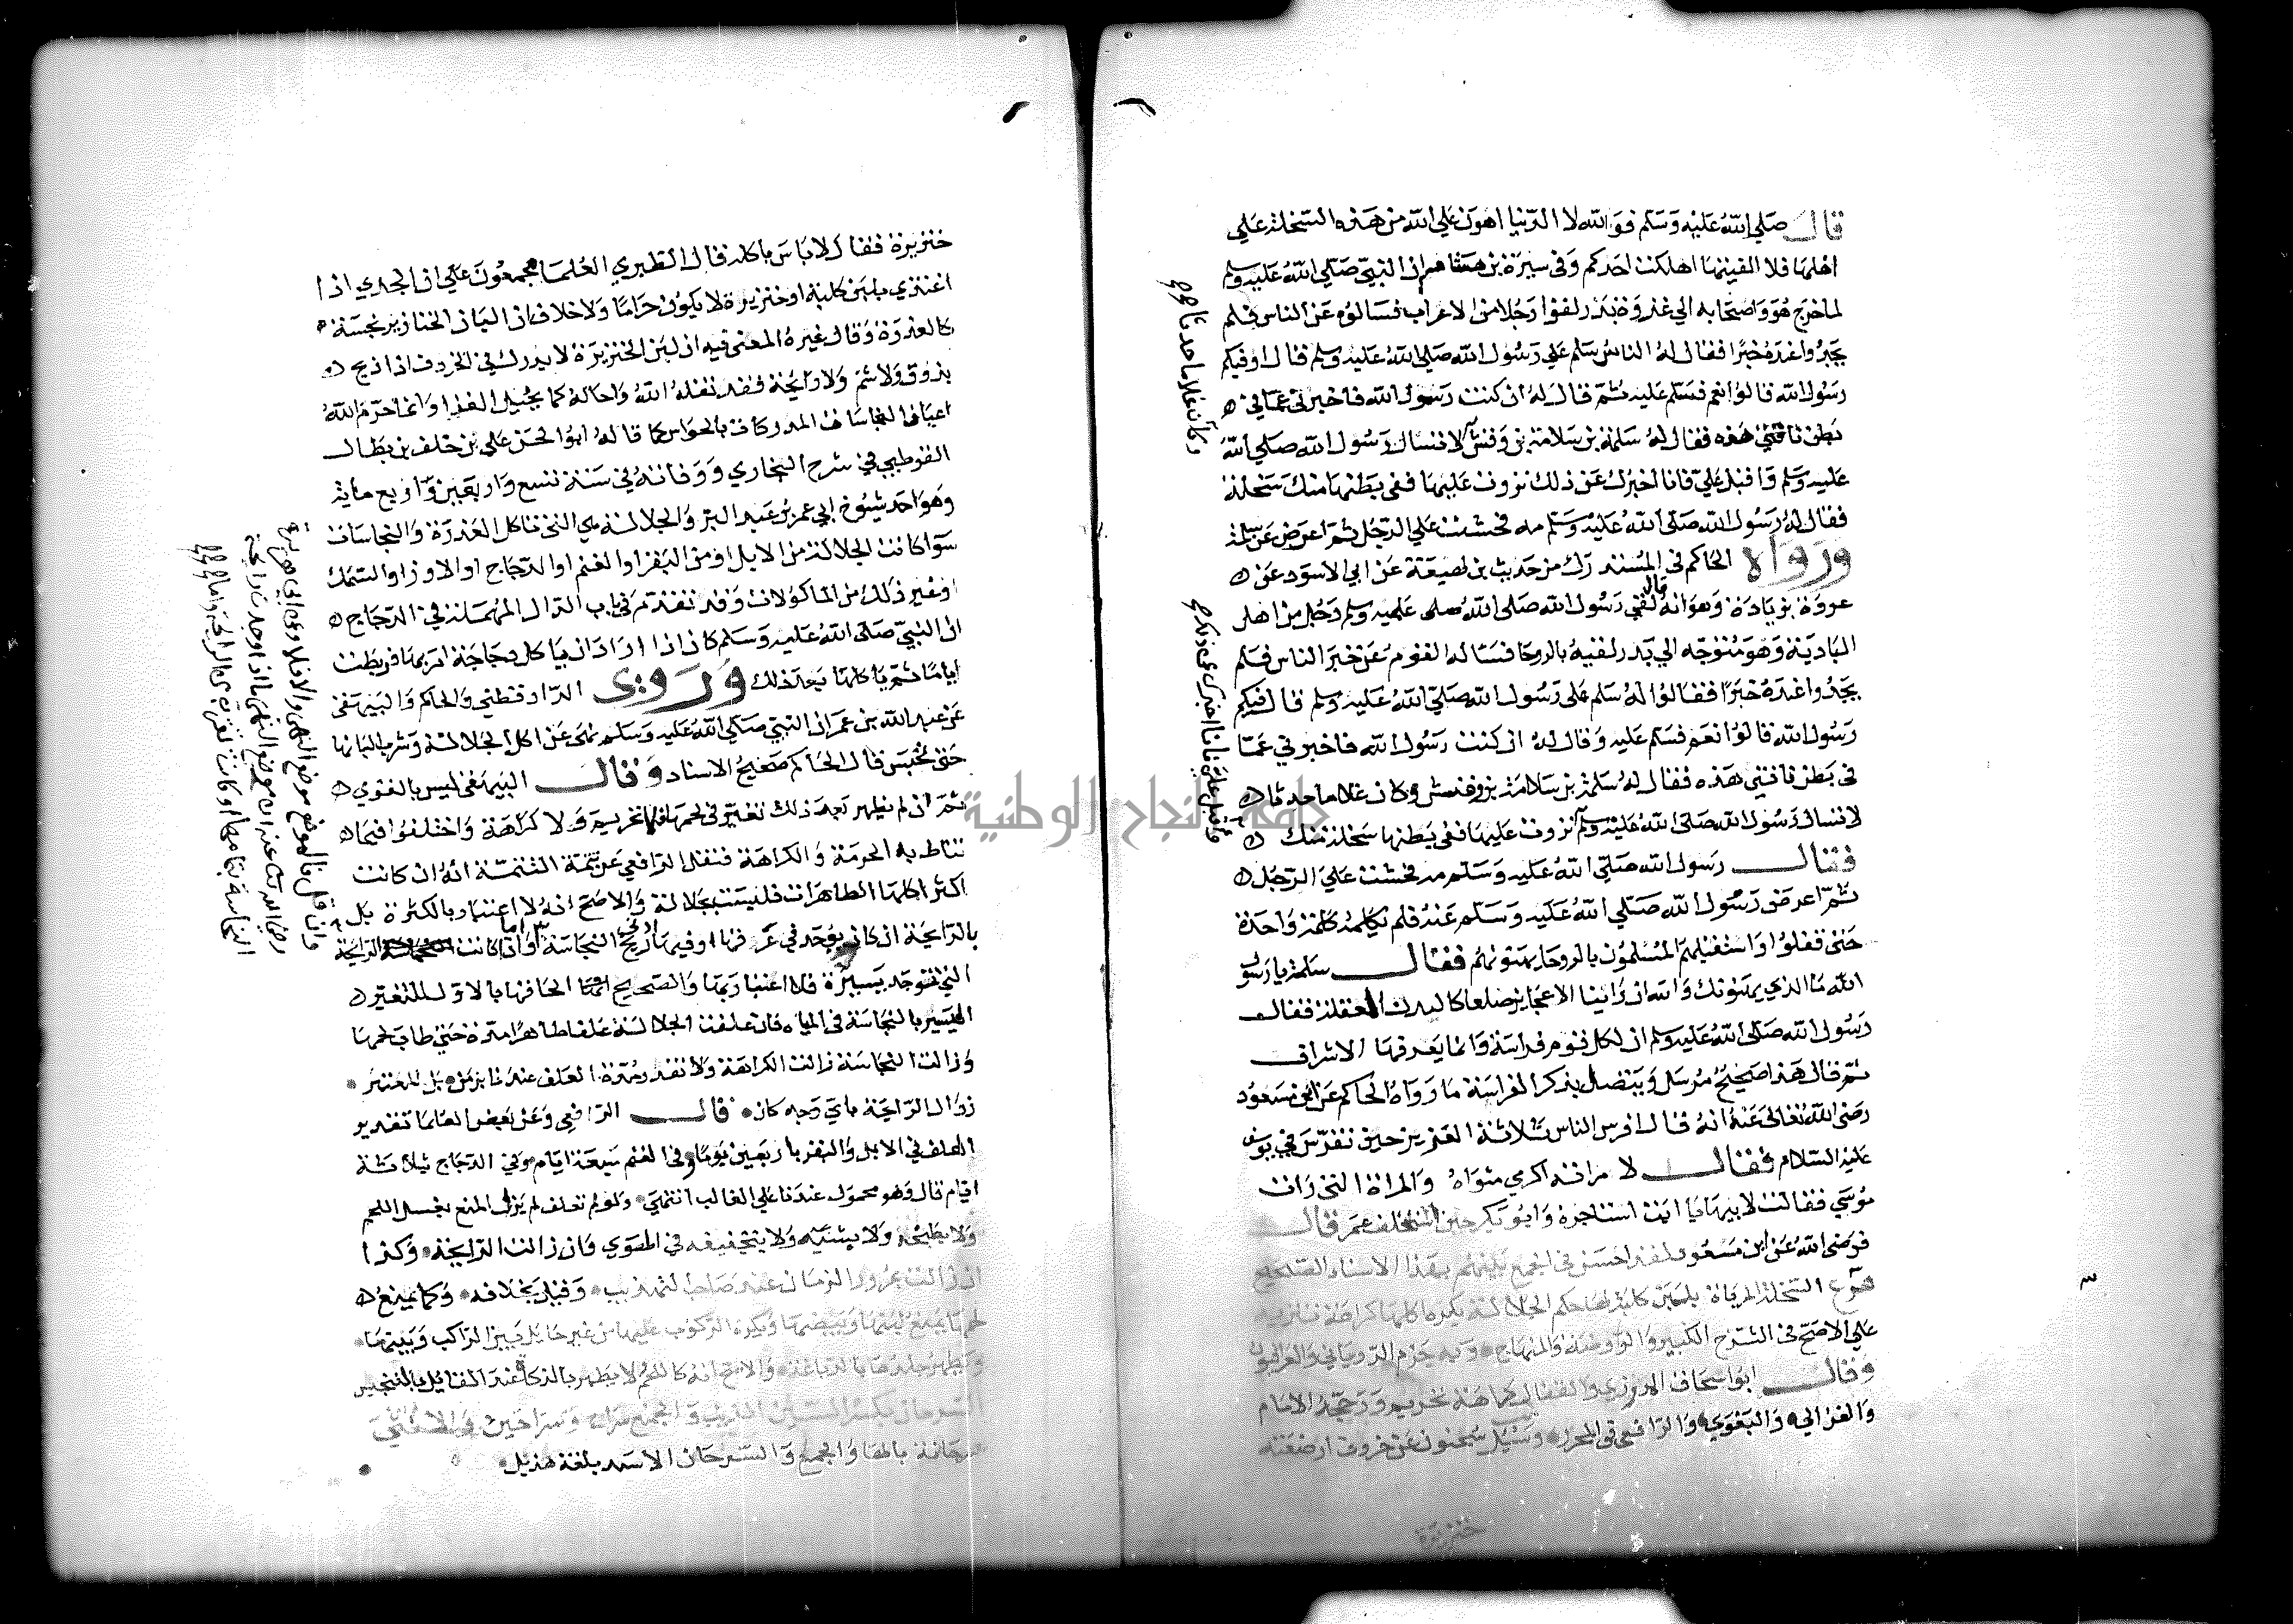 قال صلي الله عليه وسلم فوالله لا الدنيا اهون علي الله من هذه السخلة علي
اهلها فلا الفينها اهلكت احدكم وفي سيرة بن هشام ان النبي صلي الله عليه وسلم
لما خرج هو واصحابه الي غزوة بدر لقوا رجلا من الاعراب فسالوه عن الناس فلم
يجدوا عنده خبرا فقال له الناس سلم علي رسول الله صلي الله عليه وسلم قال اوفيكم
رسول الله قالوا نعم فسلم عليه ثم قال له ان كنت رسول الله فاخبرني عما في
بطن ناقتي هذه فقال له سلمة بن سلامة بن وقش لا تسال رسول الله صلي الله
عليه وسلم واقبل علي فانا اخبرك عن ذلك نزوت عليها ففي بطنها منك سخلة
فقال له رسول الله صلي الله عليه وسلم مه فحشت علي الرجل ثم اعرض عن سلمة
ورواه الحاكم في المستدرك من حديث بن لهيعة عن ابي الاسود عن
عروة بزيادة وهو انه قال لقي رسول الله صلي الله عليه وسلم رجل من اهل
البادية وهو متوجه الي بدر لقيه بالروحا فساله القوم عن خبر الناس فلم
يجدوا عنده خبرا فقالوا له سلم علي رسول الله صلي الله عليه وسلم قال افيكم
رسول الله قالوا نعم فسلم عليه وقال له ان كنت رسول الله فاخبرني عما
في بطن ناقتي هذه فقال له سلمة بن سلامة بن وقش وكان غلاما حدثا
لا تسال رسول الله صلي الله عليه وسلم نزوت عليها ففي بطنها سخلة منك
فقال رسول الله صلي الله عليه وسلم مه فحشت علي الرجل
ثم اعرض رسول الله صلي الله عليه وسلم عنه فلم يكلمه كلمة واحدة
حتي قفلوا واستقبلهم المسلمون بالروحا يهنونهم فقال سلمة يا رسول
الله ما الذي يهنونك والله ان راينا الا عجايز صلعا كالبدن المعقلة فقال
رسول الله صلي الله عليه وسلم ان لكل قوم فراسة وانما يعرفها الاشراف
ثم قال هذا صحيح مرسل ويتصل بذكر الفراسة ما رواه الحاكم عن ابن مسعود
رضي الله تعالي عنه انه قال افرس الناس ثلاثة العزيز حين تفرس في يوسف
عليه السلام فقال لامراته اكرمي مثواه والمراة التي رات
موسي فقالت لابيها يا ابت استاجره وابو بكر حين استخلف عمر قال
فرضي الله عن ابن مسعود لقد احسن في الجمع بينهم بهذا الاسناد الصحيح
فرع السخلة المرباة بلبن كلبة لها حكم الجلالة يكره اكلها كراهة تنزيه
علي الاصح في الشرح الكبير والروضة والمنهاج وبه جزم الروياني والعراقيون
وقال ابو اسحاق المروزي والقفال كراهة تحريم ورجحه الامام
والغزالي والبغوي والرافعي في المحرر وسئل سحنون عن خروف ارضعته
خنزيرة
وكان غلاما حدثا
واقبل علي فانا اخبرك عن ذلك
جامعة النجاح الوطنية
خنزيرة فقال لا باس باكله قال الطبري العلما مجمعون علي ان الجدي اذا
اغتذي بلبن كلبة او خنزيرة لا يكون حراما ولا خلاف ان البان الخنازير نجسة
كالعذرة وقال غيره المعني فيه ان لبن الخنزيرة لا يدرك في الخروف اذا ذبح
بذوق ولا شم ولا رايحة فقد نقله الله واحاله كما يحيل الغذا وانما حرم الله
اعيان النجاسات المدركات بالحواس كما قاله ابو الحسن علي بن خلف بن بطال
القرطبي في شرح البخاري ووفاته في سنة تسع واربعين واربع ماية
وهو احد شيوخ ابي عمر بن عبد البر والجلالة هي التي تاكل العذرة والنجاسات
سوا كانت الجلالة من الابل او من البقر او الغنم او الدجاج او الاوز او السمك
او غير ذلك من الماكولات وقد تقدم في باب الدال المهملة في الدجاج
ان النبي صلي الله عليه وسلم كان اذا اراد ان ياكل دجاجة امر بها فربطت
اياما ثم ياكلها بعد ذلك وروي الدارقطني والحاكم والبيهقي
عن عبد الله بن عمر ان النبي صلي الله عليه وسلم نهي عن اكل الجلالة وشرب البانها
حتي تحبس قال الحاكم صحيح الاسناد وقال البيهقي ليس بالقوي
ثم ان لم يظهر بعد ذلك تغير في لحمها فلا تحريم ولا كراهة واختلفوا فيما
تناط به الحرمة والكراهة فنقل الرافعي عن تتمة التتمة انه ان كانت
اكثر اكلها الطاهرات فليست بجلالة والاصح انه لا اعتماد بالكثرة بل
بالرايحة ان كان يوجد في عرقها او فيها ادني ريح النجاسة اما ان كانت الرايحة
التي توجد يسيرة فلا اعتبار بها والصحيح الحاقها بالاول للتغير
اليسير بالنجاسة في المياه فان علفت الجلالة علفا طاهرا مدة حتي طاب لحمها
وزالت النجاسة زالت الكراهة ولا تقدر مدة العلف عندنا بزمن بل المعتبر
زوال الرايحة باي وجه كان قال الرافعي وعن بعض العلما تقدير
العلف في الابل والبقر باربعين يوما وفي الغنم سبعة ايام وفي الدجاج ثلاثة
ايام قال وهو محمول عندنا علي الغالب انتهي ولو لم تعلف لم يزل المنع بغسل اللحم
ولا بطبخه ولا بشيه ولا بتجفيفه في الهوي وان زالت الرايحة وكذا
ان زالت بمرور الزمان عند صاحب التهذيب وقيل بخلافه وكما يمنع
لحمها يمنع لبنها وبيضها ويكره الركوب عليها من غير حايل بين الراكب وبينها
ويطهر جلدها بالدباغ والاصح انه كاللحم لا يطهر بالذكاة عند القايل بالتنجيس
السرحان بكسر السين الذيب والجمع سراح وسراحين والانثي
سرحانة بالها والجمع والسرحان الاسد بلغة هذيل